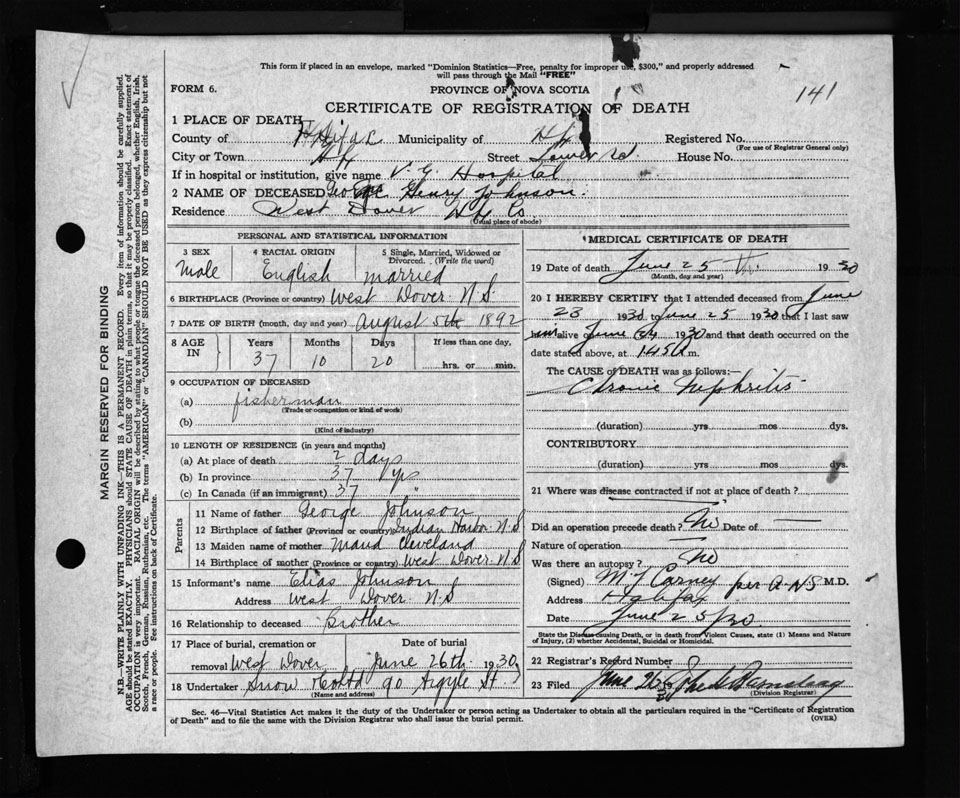 This form if placed in an envelope, marked "Dominion Statistics—Free, penalty for improper use, $300," and properly addressed
will pass through the Mail "FREE"
FORM 6.
PROVINCE OF NOVA SCOTIA
141
CERTIFICATE OF REGISTRATION OF DEATH
1 PLACE OF DEATH
County of Halifax Municipality of Hfx Registered No.
(For use of Registrar General only)
City or Town Hfx Street Tower Rd. House No.
If in hospital or institution, give name V. G. Hospital
2 NAME OF DECEASED George Henry Johnson.
Residence West Dover Hfx Co.
(Usual place of abode)
PERSONAL AND STATISTICAL INFORMATION
3 SEX 4 RACIAL ORIGIN 5 Single, Married, Widowed or
Divorced. (Write the word)
Male English Married
6 BIRTHPLACE (Province or country) West Dover N.S.
7 DATE OF BIRTH (month, day and year) August 5th 1892
8 AGE IN Years Months Days If less than one day,
37 10 20 hrs. or min.
9 OCCUPATION OF DECEASED
(a) fisherman
(Trade or occupation or kind of work)
(b)
(Kind of industry)
10 LENGTH OF RESIDENCE (in years and months)
(a) At place of death 2 days
(b) In province 37 yrs
(c) In Canada (if an immigrant) 37 "
Parents
11 Name of father George Johnson
12 Birthplace of father (Province or country) Indian Harbor N.S
13 Maiden name of mother Maud Cleveland
14 Birthplace of mother (Province or country) West Dover N.S
15 Informant's name Elias Johnson
Address West Dover N.S
16 Relationship to deceased Brother
17 Place of burial, cremation or Date of burial
removal West Dover June 26th 1930
18 Undertaker Snow & Co Ltd 90 Argyle St
(Name and address)
MEDICAL CERTIFICATE OF DEATH
19 Date of death June 25 1930
(Month, day and year)
20 I HEREBY CERTIFY that I attended deceased from June
23 1930 to June 25 1930 that I last saw
him alive on June 24 1930 and that death occurred on the
date stated above, at 1.45 A m.
The CAUSE of DEATH was as follows:—
Chronic Nephritis
(duration) yrs mos dys.
CONTRIBUTORY
(duration) yrs mos dys.
21 Where was disease contracted if not at place of death?
Did an operation precede death? No Date of —
Nature of operation —
Was there an autopsy? No
(Signed) M J Carney per A-NS M.D.
Address Halifax
Date June 25/30
State the Disease causing Death, or in death from Violent Causes, state (1) Means and Nature
of Injury, (2) whether Accidental, Suicidal or Homicidal.
22 Registrar's Record Number
23 Filed June 26
30
(Division Registrar)
Sec. 46—Vital Statistics Act makes it the duty of the Undertaker or person acting as Undertaker to obtain all the particulars required in the "Certificate of Registration
of Death" and to file the same with the Division Registrar who shall issue the burial permit.
(OVER)
MARGIN RESERVED FOR BINDING
N.B.—WRITE PLAINLY WITH UNFADING INK—THIS IS A PERMANENT RECORD. Every item of information should be carefully supplied.
AGE should be stated EXACTLY. PHYSICIANS should STATE CAUSE OF DEATH in plain terms, so that it may be properly classified. Exact statement of
OCCUPATION is very important. RACIAL ORIGIN will be described by stating to what people or tongue the deceased person belonged, whether English, Irish,
Scotch, French, German, Russian, Ruthenian, etc. The terms "AMERICAN" or "CANADIAN" SHOULD NOT BE USED as they express citizenship but not
a race or people. See instructions on back of Certificate.